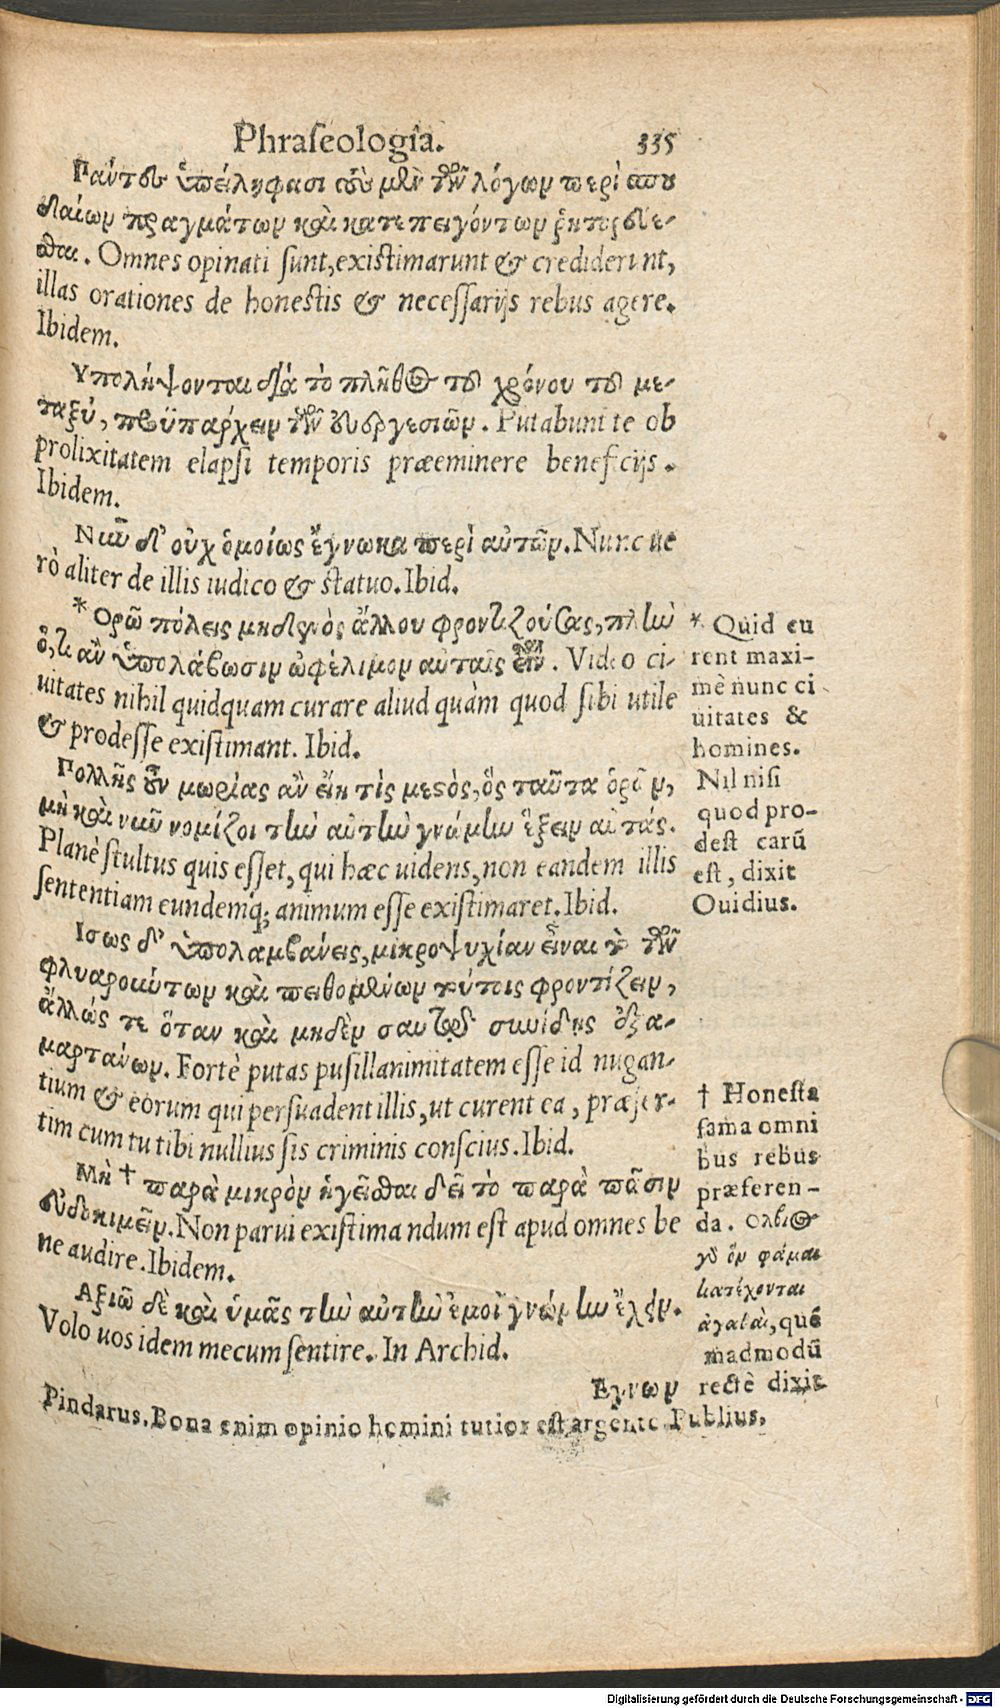 Phraseologia. 335
Πάντες ὑπειλήφασι τοὺς μὲν τῶν λόγων περὶ σπου
δαίων πραγμάτων καὶ κατεπειγόντων ῥητορεύε-
σθαι. Omnes opinati sunt, existimarunt & crediderunt,
illas orationes de honestis & necessarijs rebus agere.
Ibidem.
Υπολήψονται διὰ τὸ πλῆθος τοῦ χρόνου τοῦ με-
ταξύ, προϋπάρχειν τῶν εὐεργεσιῶν. Putabunt te ob
prolixitatem elapsi temporis præeminere beneficijs.
Ibidem.
Νῦν δ' οὐχ ὁμοίως ἔγνωκα περὶ αὐτῶν. Nunc ue
rò aliter de illis iudico & statuo. Ibid.
*Ορῶ πόλεις μηδενὸς ἄλλου φροντιζούσας, πλὴν
ὅ,τι ἂν ὑπολάβωσιν ὠφέλιμον αὐταῖς εἶναι. Video ci-
uitates nihil quidquam curare aliud quàm quod sibi utile
& prodesse existimant. Ibid.
Πολλῆς οὖν μωρίας ἂν εἴη τὶς μεστὸς, ὃς ταῦτα ὁρῶν,
μὴ καὶ νῦν νομίζοι τὴν αὐτὴν γνώμην ἕξειν αὐτάς.
Planè stultus quis esset, qui hæc uidens, non eandem illis
sententiam eundemq; animum esse existimaret. Ibid.
Ισως δ' ὑπολαμβάνεις, μικροψυχίαν εἶναι τὸ τῶν
φλυαρούντων καὶ πειθομένων τούτοις φροντίζειν,
ἄλλώς τε ὅταν καὶ μηδὲν σαυτῷ συνίδῃς ἐξα-
μαρτάνων. Fortè putas pusillanimitatem esse id nugan-
tium & eorum qui persuadent illis, ut curent ea, præser-
tim cum tu tibi nullius sis criminis conscius. Ibid.
Μὴ † παρὰ μικρὸν ἡγεῖσθαι δεῖ τὸ παρὰ πᾶσιν
εὐδοκιμεῖν. Non parui existimandum est apud omnes be
ne audire. Ibidem.
Αξιῶ δὲ καὶ ὑμᾶς τὴν αὐτὴν ἐμοὶ γνώμην ἔχειν.
Volo uos idem mecum sentire. In Archid.
Εγνων
* Quid cu
rent maxi-
mè nunc ci
uitates &
homines.
Nil nisi
quod pro-
dest carū
est, dixit
Ouidius.
† Honesta
fama omni
bus rebus
præferen-
da. Ολβιος
γὸ ὃν φάμαι
κατέχονται
ἀγαθαὶ, quē
madmodū
rectè dixit
Pindarus. Bona enim opinio homini tutior est argento. Publius.
Digitalisierung gefördert durch die Deutsche Forschungsgemeinschaft - DFG